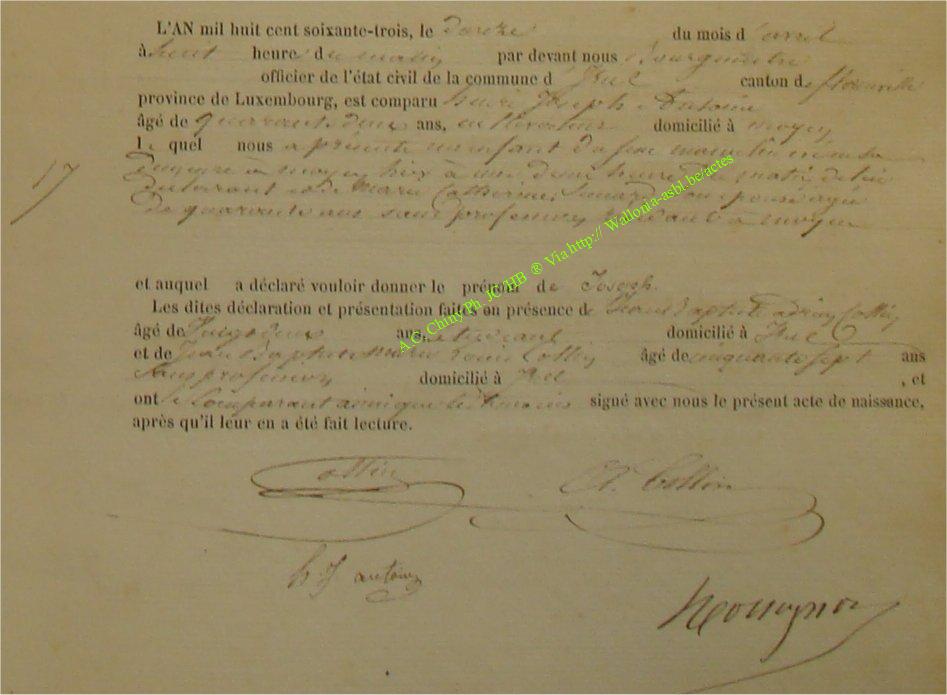 L'AN mil huit cent soixante-trois, le douze du mois d'avril
à huit heure du matin par devant nous Bourgmestre
officier de l'état civil de la commune d'Izel canton de Florenville
province de Luxembourg, est comparu henri Joseph Antoine
âgé de quarante deux ans, cultivateur domicilié à moyen
le quel nous a présenté un enfant du sexe masculin né en sa
17
demeure à moyen hier à deux heure du matin de lui
déclarant et de Marie Catherine son épouse agée
de quarante ans sans profession à moyen
et auquel a déclaré vouloir donner le prénom de Joseph
Les dites déclaration et présentation faites en présence de Jean Baptiste Collin
âgé de vingt deux ans étudiant domicilié à Izel
et de Jean Baptiste Collin âgé de cinquante sept ans
sans profession domicilié à Izel , et
ont le Comparant ainsi que les témoins signé avec nous le présent acte de naissance,
après qu'il leur en a été fait lecture.
Collin A. Collin
h J antoine
A.C. Chiny Ph. JC HB ® Via http:// Wallonia-asbl.be/actes